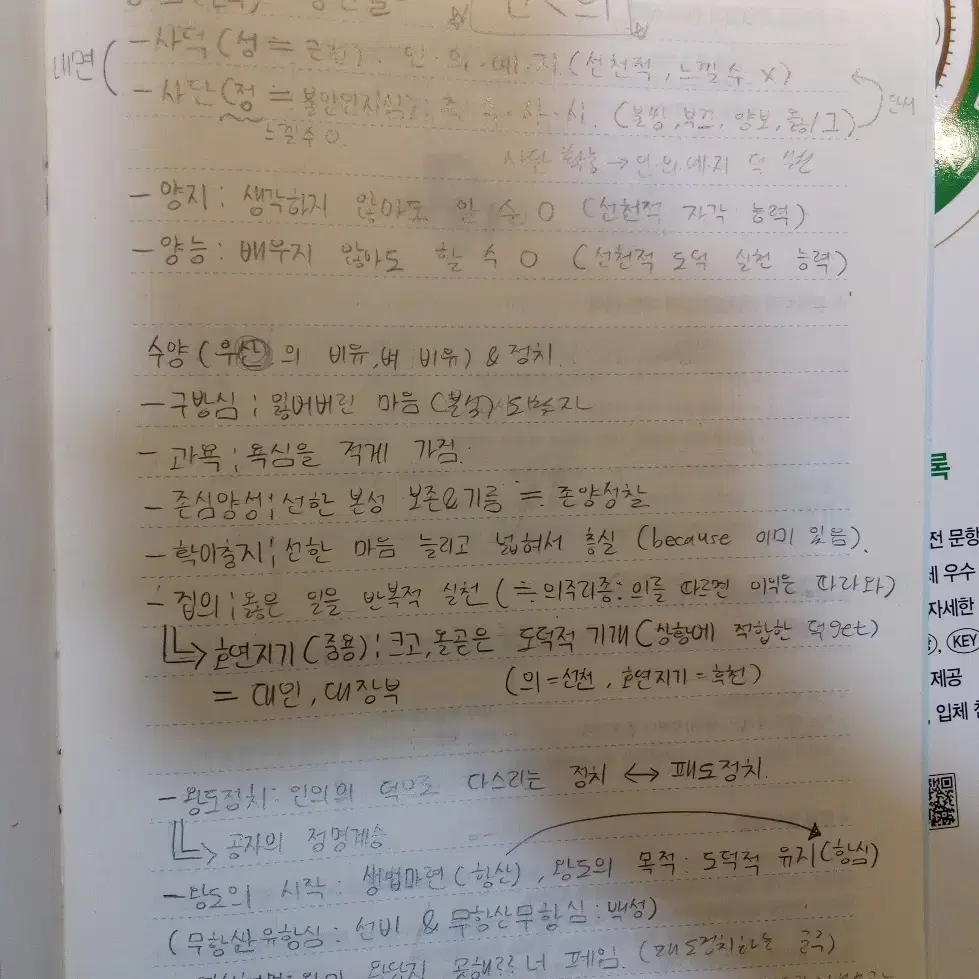 인 < 의
내면
- 사덕 (성 = 근원) : 인·의·예·지 (선천적, 느낄 수 X)
- 사단 (정 = 불인인지심) : 측·수·사·시. (불쌍, 부끄, 양보, 옳/그) 단서
느낄 수 O.
사단 확충 → 인의예지 덕
- 양지 : 생각하지 않아도 알 수 O (선천적 자각 능력)
- 양능 : 배우지 않아도 할 수 O (선천적 도덕 실천 능력)
수양 (우산의 비유, 벼 비유) & 정치.
- 구방심 ; 잃어버린 마음 (본성)
- 과욕 ; 욕심을 적게 가짐.
- 존심양성 ; 선한 본성 보존&기름 ≒ 존양성찰
- 확이충지 ; 선한 마음 늘리고 넓혀서 충실 (because 이미 있음).
- 집의 ; 옳은 일을 반복적 실천 (≒ 의주리종 : 의를 따르면 이익은 따라와)
↳ 호연지기 (중용) ; 크고, 올곧은 도덕적 기개 (상황에 적합한 덕 get)
= 대인, 대장부 (의 = 선천, 호연지기 = 후천)
- 왕도정치 : 인의의 덕으로 다스리는 정치 ↔ 패도정치.
↳ 공자의 정명계승
- 왕도의 시작 : 생업마련 (항산), 왕도의 목적 : 도덕적 유지 (항심)
(무항산유항심 : 선비 & 무항산무항심 : 백성)
너 폐임. (패도정치하는 군주)
록
전 문항
우수
자세한
KEY
제공
, 입체